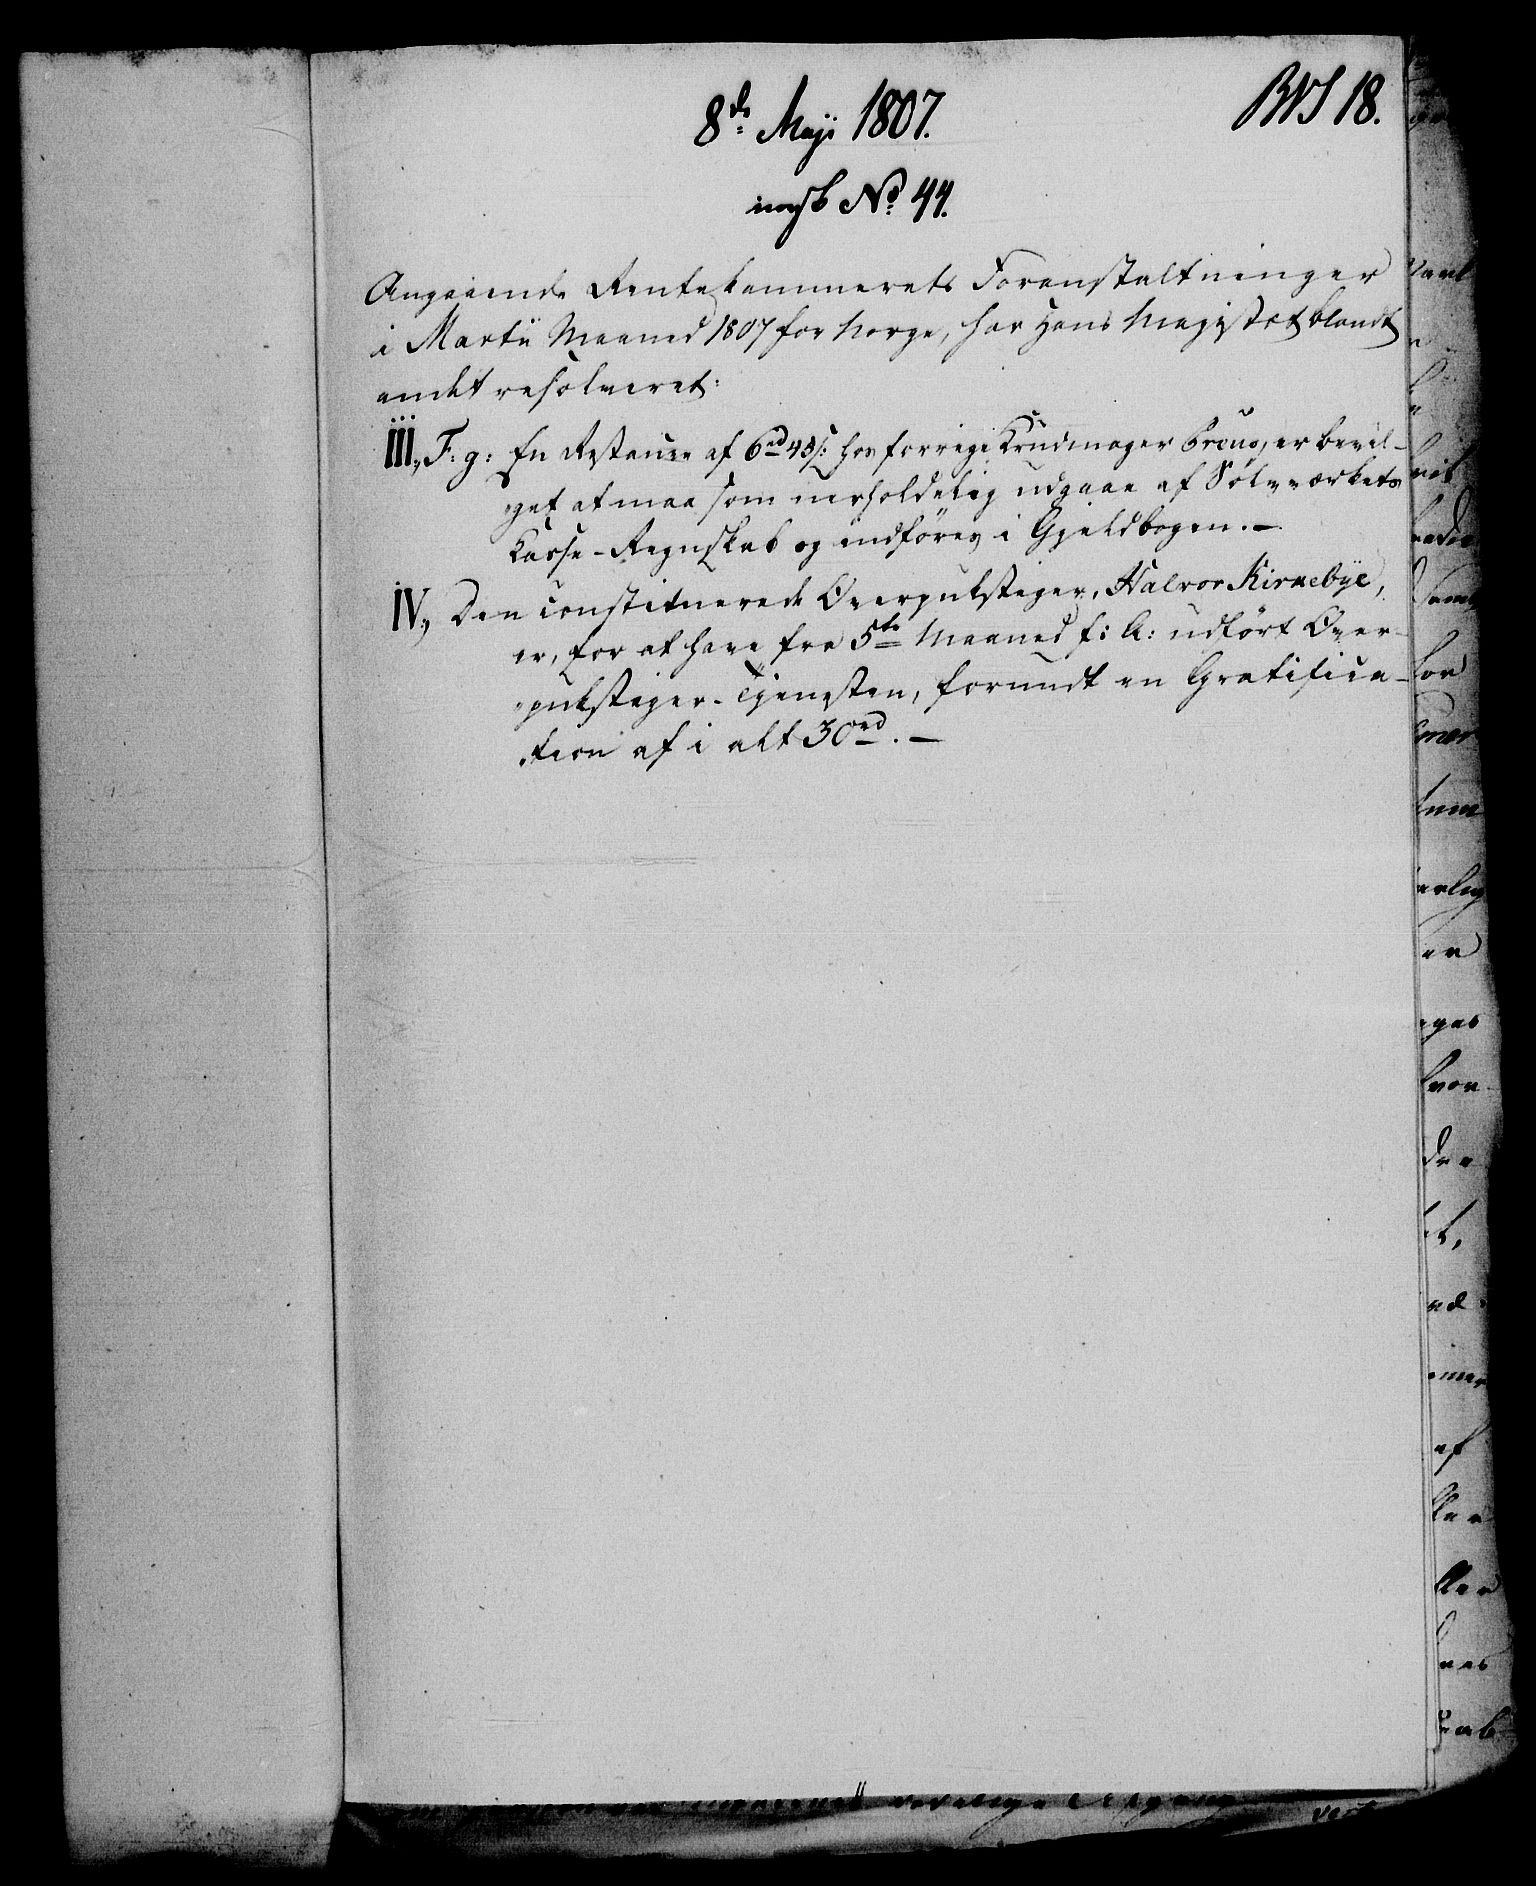 8de Maji 1807.
BNS 18.
norsk No 44.
Angaaende Rentekammerets Foranstaltninger
i Martii Maaned 1807 for Norge, har Hans Majestæt blandt
andet resolveret:
III, F: g: En Restance af 6rd 48s: hos forrige Krudmager Preus, er bevil-
get at maa som uerholdelig udgaae af Sølvværkets
Kasse-Regnskab og indføres i Gjeldbogen. —
IV, Den constituerede Overpukstiger, Halvor Kirnebÿe,
er, for at have fra 5te Maaned f: A: udført Over-
pukstiger-Tjenesten, forundt en Gratifica-
tion af i alt 30rd. —